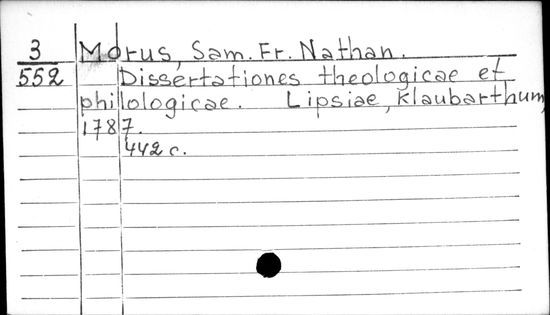 3 Morus, Sam. Fr. Nathan.
552 Dissertationes theologicae et
philologicae. Lipsiae, Klaubarthum,
1787.
442 c.